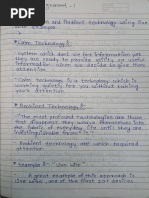 and Ambient Technology using live
with example
* Calm Technology :-
System which don't we be information yet
they are ready to provide utility or useful
information when we decide to give them
attention
Calm technology is a technology which is
working quietly for you without taking your
attention.
* Ambient Technology :-
"The most profound technologies are those
that disappear. They weave themselves into
the fabric of everyday life until they are
indistinguishable from it."
Ambient technology are which required
attention.
* Example :- "Live Wire"
A great example of this approach is
live wire, one of the first per